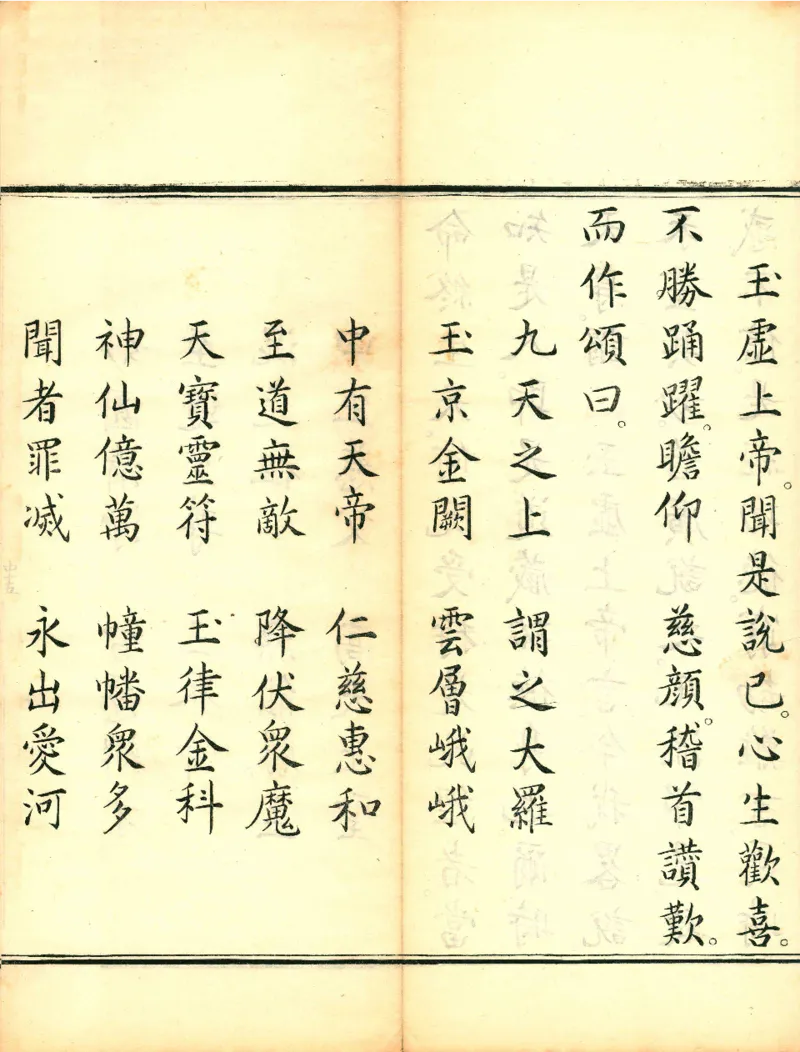 玉虛上帝。聞是說已。心生歡喜。
不勝踊躍。瞻仰 慈顏。稽首讚歎。
而作頌曰。
九天之上 謂之大羅
玉京金闕 雲層峨峨
中有天帝 仁慈惠和
至道無敵 降伏眾魔
天寶靈符 玉律金科
神仙億萬 幢幡眾多
聞者罪滅 永出愛河